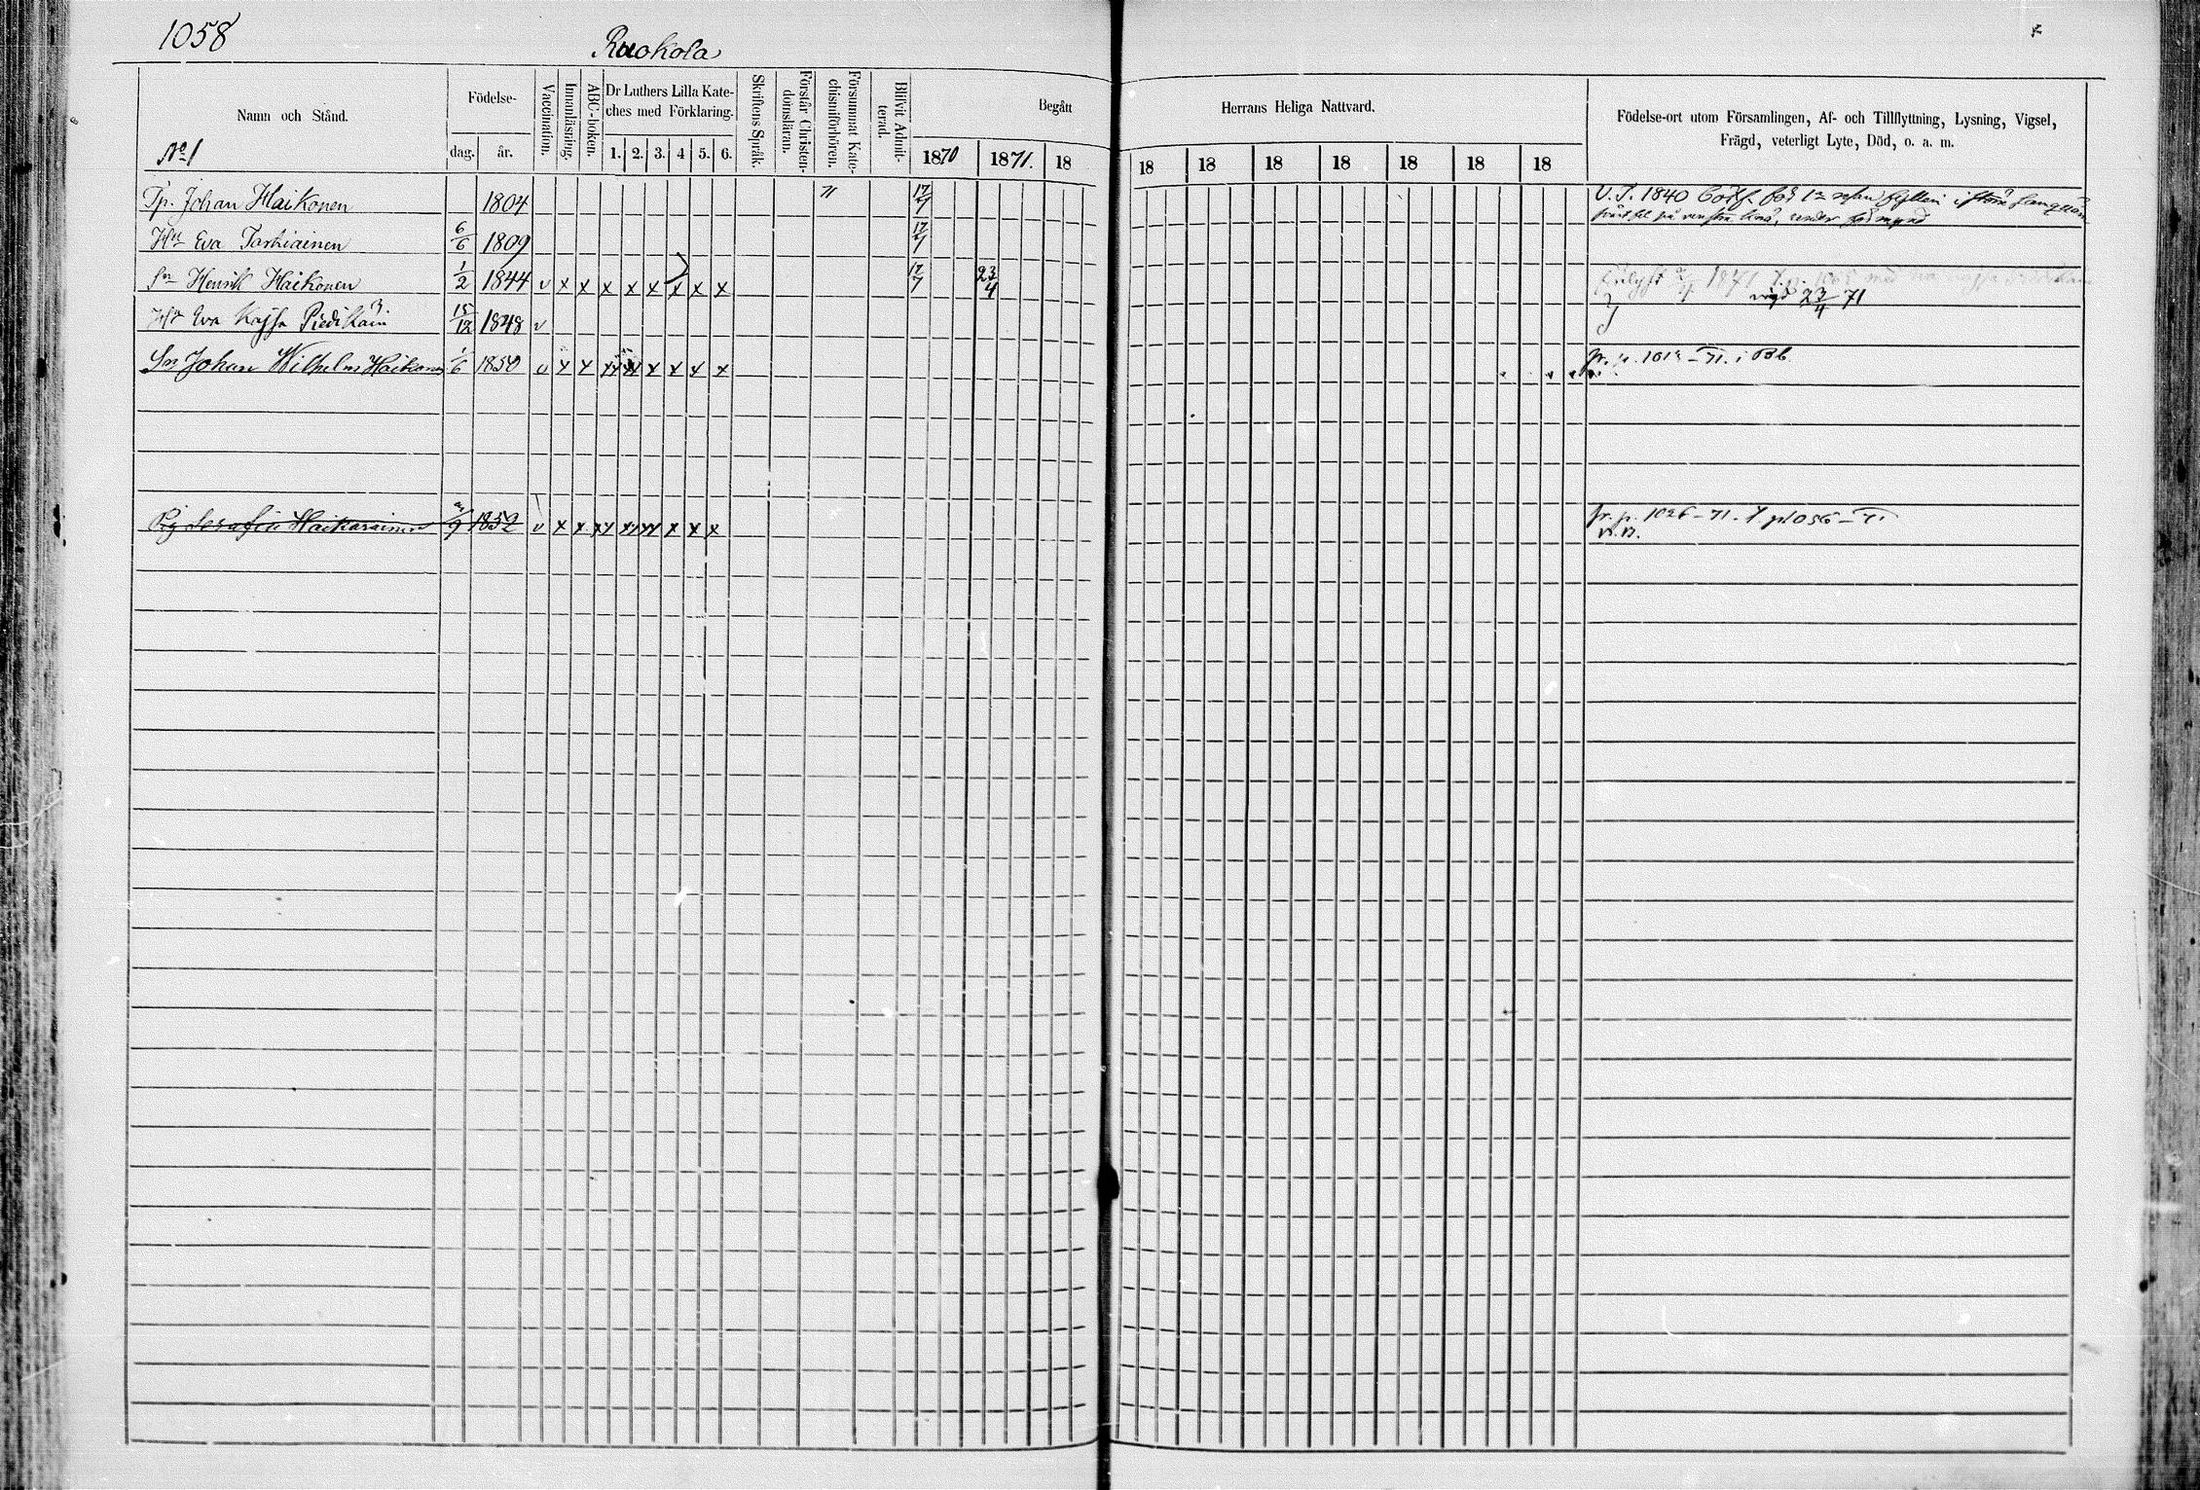 1058
Ruokola
Namn och Stånd.
Födelse-
dag. år.
Vaccination.
Innanläsning.
ABC-boken.
Dr Luthers Lilla Kate-
ches med Förklaring.
1. 2. 3. 4 5. 6.
Skriftens Språk.
Förstår Christen-
domsläran.
Försummat Kate-
chismiförhören.
Blifvit Admit-
terad.
Begått Herrans Heliga Nattvard.
1870 1871. 18 18 18 18 18 18 18 18
Födelse-ort utom Församlingen, Af- och Tillflyttning, Lysning, Vigsel,
Frägd, veterligt Lyte, Död, o. a. m.
No 1
Tp. Johan Haikonen 1804 " 17/7 1840
Hu Eva Tarkiainen 6/6 1809 17/7
Sn Henrik Haikonen 1/2 1844 v x x x x x x x x 17/7 23/4 1871
vigd 23/4 71
Hu Eva Kajsa 15/12 1848 v
Sn Johan Wilhelm Haikonen 1/6 1850 v x x x x x x x fr. p. 71. i Bb.
Pig Serafia Haikarainen 9 1852 v x x x x x x x x fr. p. 1026-71. p 1056-71